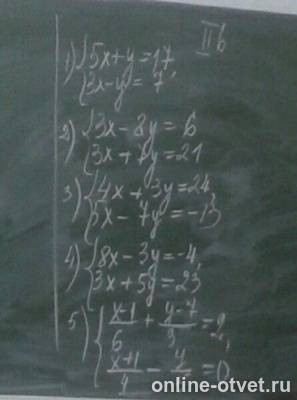 II в
1) { 5x + y = 17,
3x - y = 7
2) { 3x - 8y = 6
3x + 7y = 21
3) { 4x + 3y = 24,
5x - 7y = -13
4) { 8x - 3y = -4,
3x + 5y = 23
5) { (x-1)/6 + (y-7)/3 = 2,
(x+1)/4 - y/ = 0
online-otvet.ru